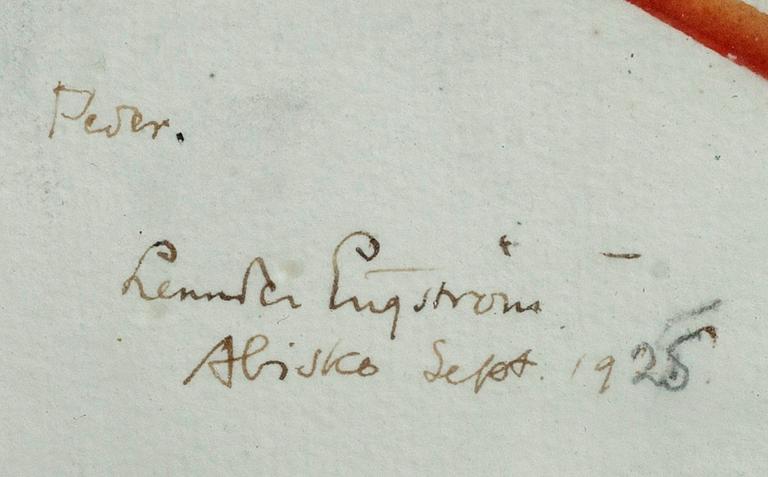 Peder.
Leander Engström
Abisko Sept. 1925